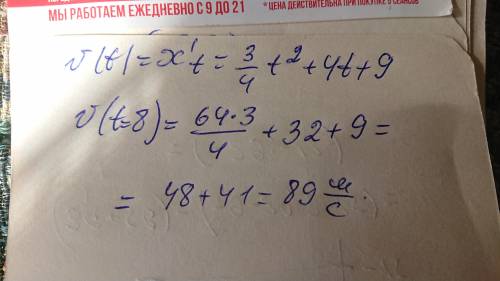 МЫ РАБОТАЕМ ЕЖЕДНЕВНО С 9 ДО 21
* ЦЕНА ДЕЙСТВИТЕЛЬНА ПРИ ПОКУПКЕ 5 СЕАНСОВ
v(t)=x't=3/4 t²+4t+9
v(t=8)=64·3/4+32+9=
=48+41=89 м/с.